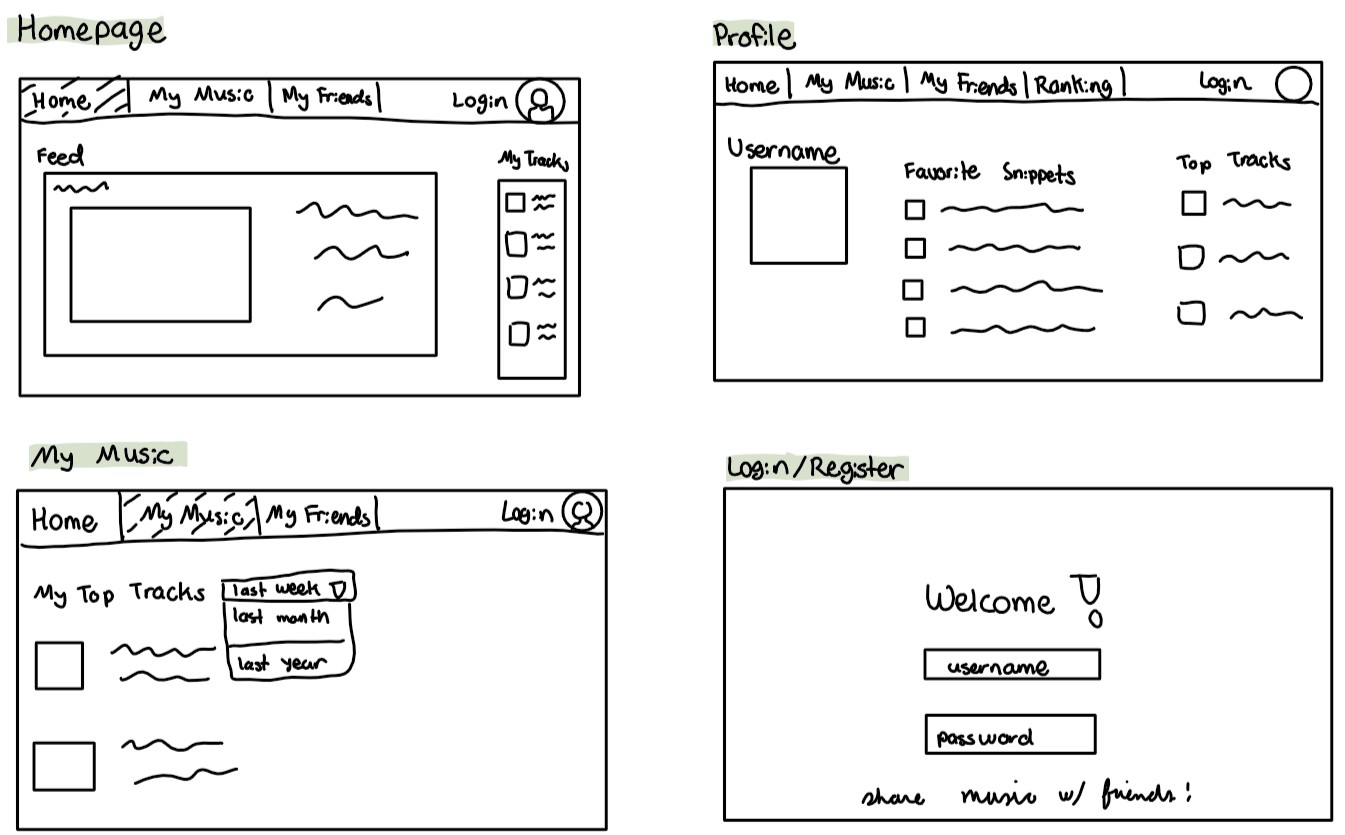 Homepage
Home My Music My Friends Login
Feed
My Tracks
Profile
Home My Music My Frends Ranking Login
Username
Favorite Snippets
Top Tracks
My Music
Home My Music My Friends Login
My Top Tracks last week
last month
last year
Login/Register
Welcome !
username
password
share music w/ friends!